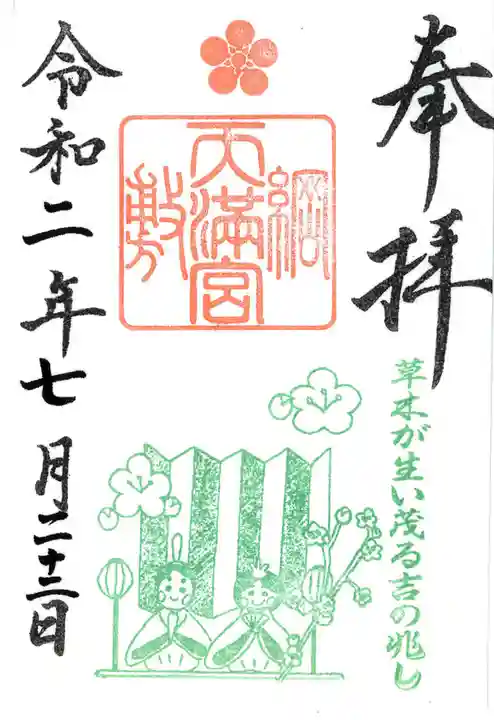 奉拝
綱敷天満宮
草木が生い茂る吉の兆し
令和二年七月二十三日